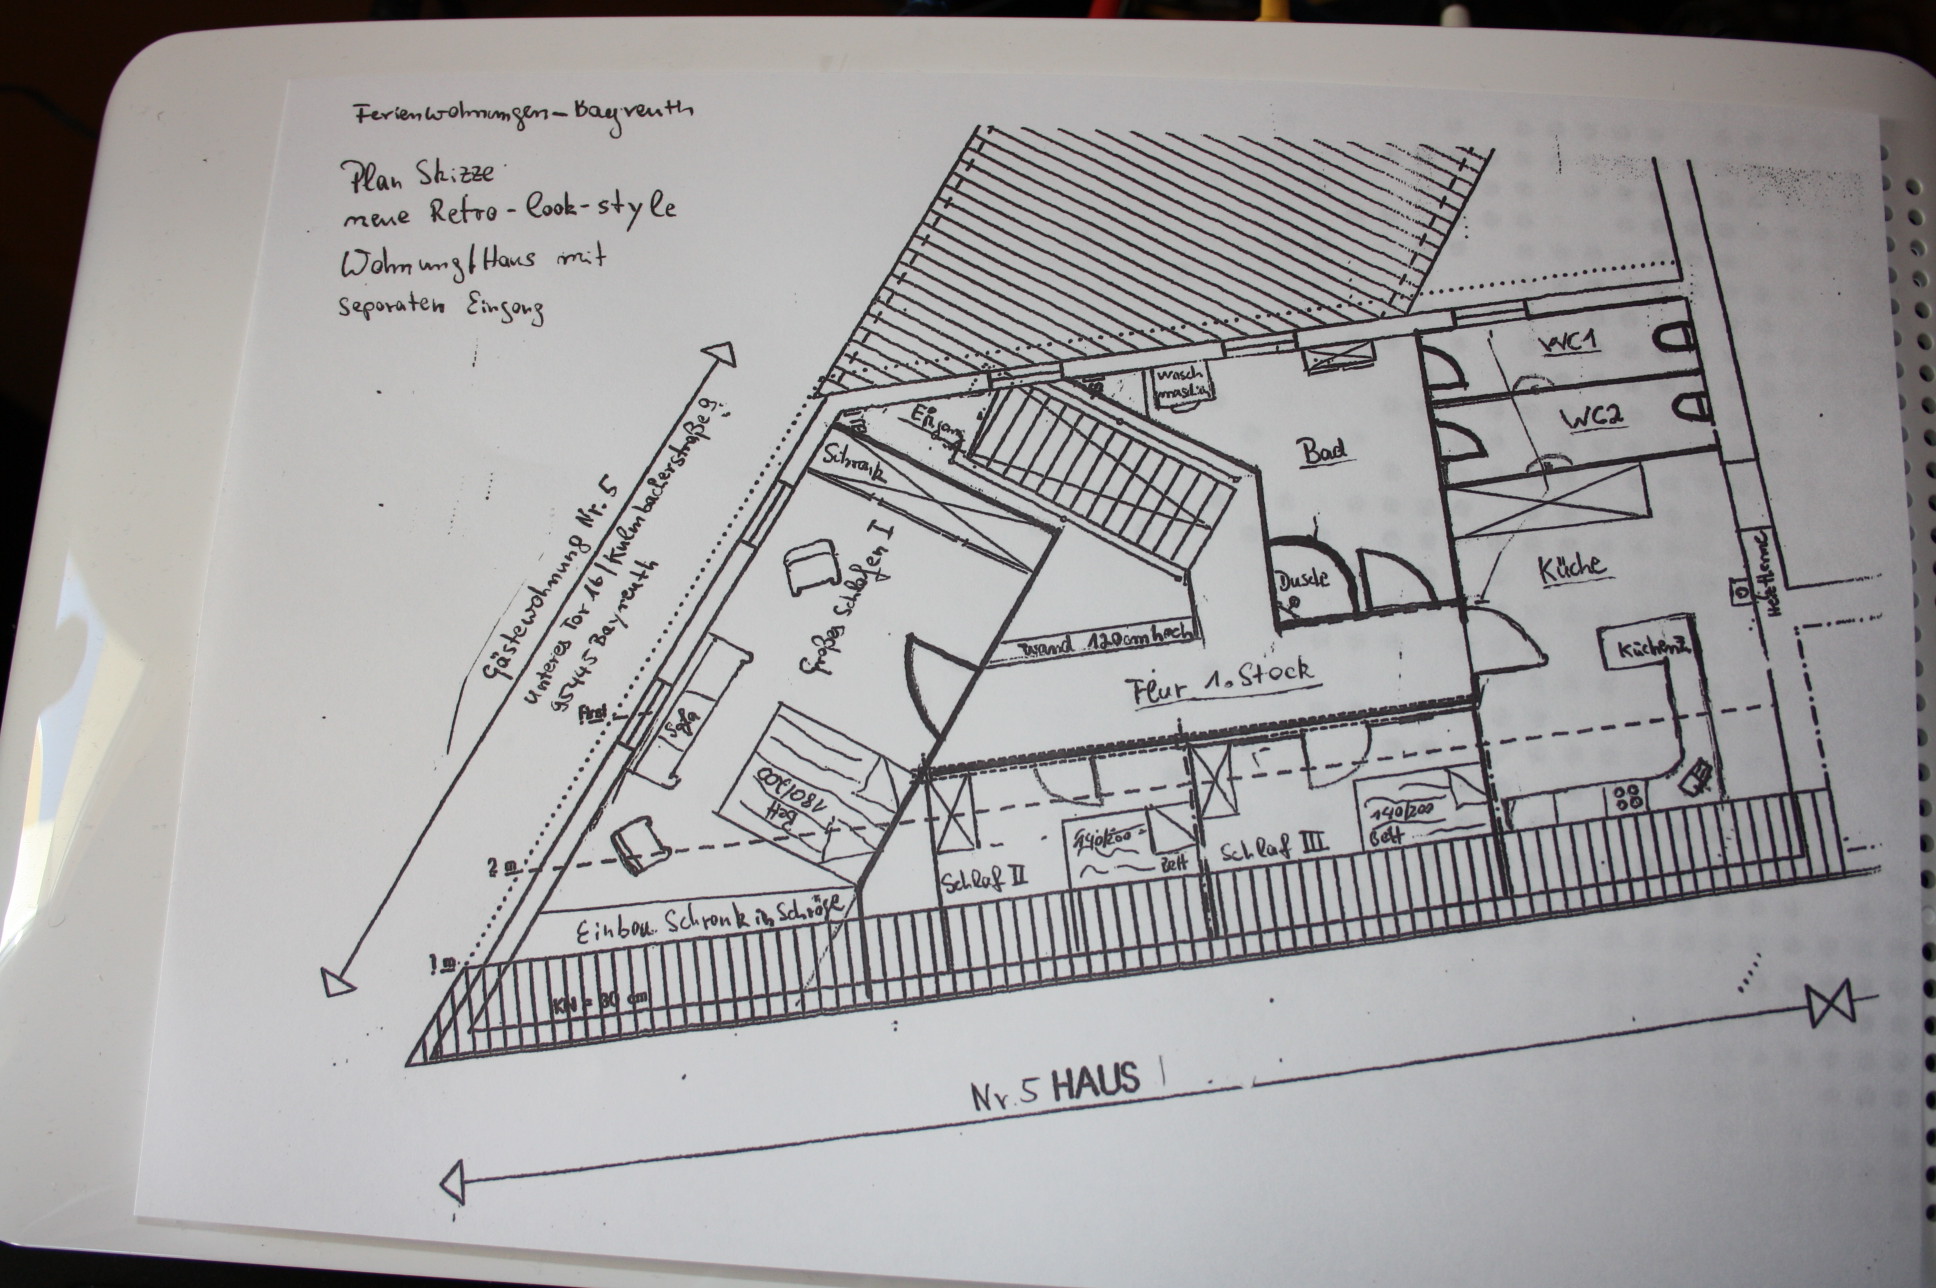 Ferienwohnungen-Bayreuth
Plan Skizze
neue Retro-look-style
Wohnung/Haus mit
separaten Eingang
Gästewohnung Nr. 5
Unteres Tor 16/Kulmbacherstraße 9
95445 Bayreuth
First
2 m
1 m
Eingang
Schrank
Großes Schlafen I
Sofa
180/200
Bett
Einbau Schrank in Schräge
KN = 30 cm
Wasch
maschin
Bad
Dusche
WC1
WC2
Küche
Heiztherme
Wand 120cm hoch
Flur 1. Stock
Schlaf II
140/200
Bett
Schlaf III
140/200
Bett
Nr. 5 HAUS